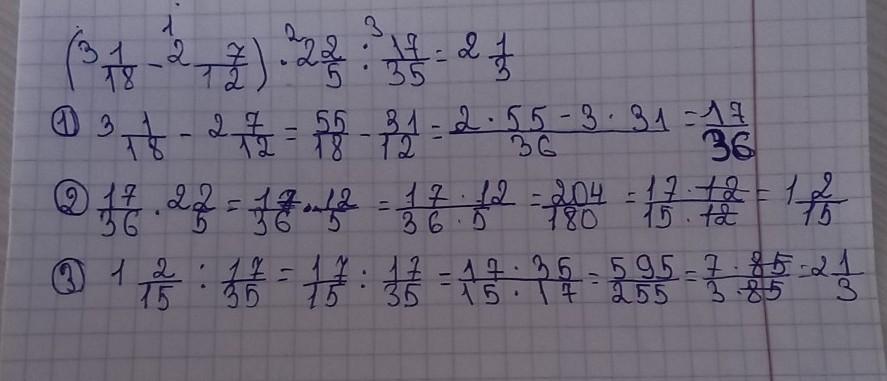 (3 1/18 - 2 7/12) · 2 2/5 : 17/35 = 2 1/3
① 3 1/18 - 2 7/12 = 55/18 - 31/12 = (2 · 55 - 3 · 31)/36 = 17/36
② 17/36 · 2 2/5 = 17/36 · 12/5 = (17 · 12)/(36 · 5) = 204/180 = (17 · 12)/(15 · 12) = 1 2/15
③ 1 2/15 : 17/35 = 17/15 : 17/35 = (17 · 35)/(15 · 17) = 595/255 = (7 · 85)/(3 · 85) = 2 1/3